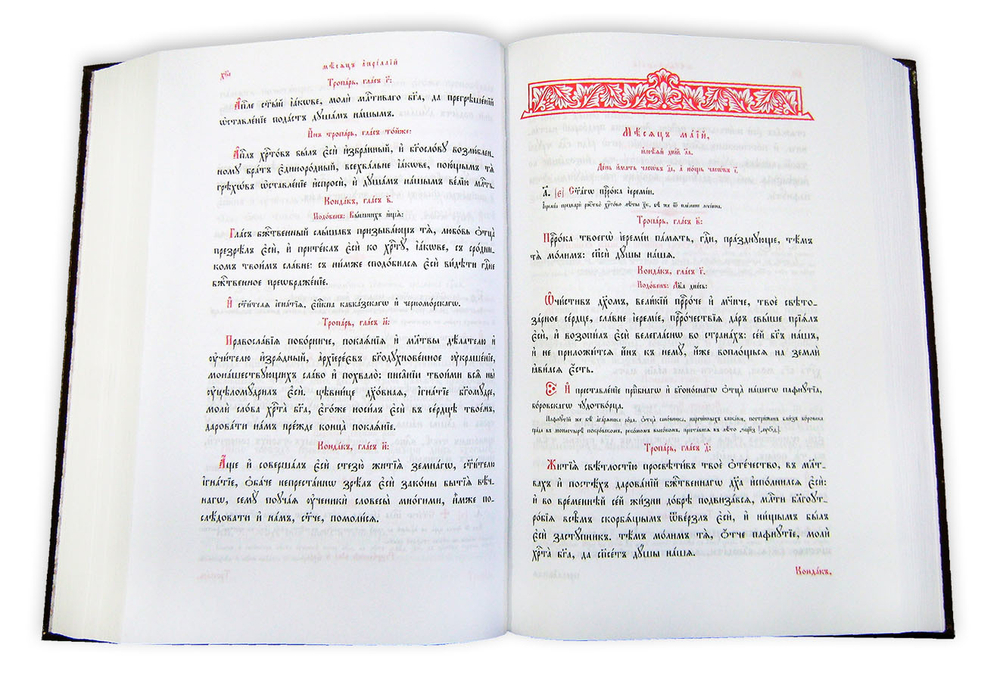 мѣсяцъ апрі́ллій
Тропа́рь, гла́съ г҃:
Апⷭ҇ле ст҃ы́й і҆а́кѡве, молѝ млⷭ҇тиваго бг҃а, да прегрѣше́нїй
ѡ҆ставле́нїе пода́стъ душа́мъ на́шымъ.
И҆́нъ тропа́рь, гла́съ то́йже:
Апⷭ҇лъ хрⷭ҇то́въ бы́лъ є҆сѝ и҆збра́нный, и҆ бг҃осло́ву возлю́блен-
ному бра́тъ є҆диноро́дный, всехва́льне і҆а́кѡве, пою́щымъ тѧ̀
грѣхѡ́въ ѡ҆ставле́нїе и҆спросѝ, и҆ душа́мъ на́шымъ ве́лїю млⷭ҇ть.
Конда́къ, гла́съ в҃:
Подо́бенъ: Вы́шнихъ и҆щѧ̀:
Гла́съ бж҃е́ственный слы́шавъ призыва́ющъ тѧ̀, любо́вь ѻ҆тца̀
презрѣ́лъ є҆сѝ, и҆ прите́клъ є҆сѝ ко хрⷭ҇тꙋ̀, і҆а́кѡве, съ сро́дни-
комъ твои́мъ сла́вне: съ ни́мже сподо́билсѧ є҆сѝ ви́дѣти гдⷭ҇не
бж҃е́ственное преѡбраже́нїе.
И҆ ст҃и́телѧ і҆гна́тїа, є҆пⷭ҇кпа кавка́зскагѡ и҆ черномо́рскагѡ.
Тропа́рь, гла́съ и҃:
Правосла́вїѧ побо́рниче, покаѧ́нїѧ и҆ мл҃твы дѣ́лателю и҆
ᲂу҆чи́телю и҆зрѧ́дный, а҆рхїере́ѡвъ бг҃одꙋхнове́нное ᲂу҆краше́нїе,
мона́шествꙋющихъ сла́во и҆ похвало̀: писа́нїи твои́ми всѧ̑ ны̀
ᲂу҆цѣломꙋ́дрилъ є҆сѝ. цѣвни́це дꙋхо́внаѧ, і҆гна́тїе бг҃омꙋ́дре,
молѝ сло́ва хрⷭ҇та̀ бг҃а, є҆го́же носи́лъ є҆сѝ въ се́рдцѣ твое́мъ,
дарова́ти на́мъ пре́жде конца̀ покаѧ́нїе.
Конда́къ, гла́съ и҃:
А҆́ще и҆ соверша́лъ є҆сѝ стезю̀ житїѧ̀ земна́гѡ, ст҃и́телю
і҆гна́тїе, ѻ҆ба́че непреста́ннѡ зрѣ́лъ є҆сѝ зако́ны бытїѧ̀ вѣ́ч-
нагѡ, семꙋ̀ поꙋча́ѧ ᲂу҆ченикѝ словесы̀ мно́гими, и҆̀мже по-
слѣ́довати и҆ на́мъ, ст҃че, помоли́сѧ.
Мѣ́сѧцъ ма́їй,
и҆мѣ́ѧй дні́й л҃а.
Де́нь и҆́мать часѡ́въ д҃і, а҆ но́щь часѡ́въ і҃.
А҃. |є҃| Ст҃а́гѡ прⷪ҇ро́ка і҆еремі́и.
Тропа́рь, гла́съ в҃:
Прⷪ҇ро́ка твоегѡ̀ і҆еремі́и па́мѧть, гдⷭ҇и, пра́зднꙋюще, тѣ́мъ
тѧ̀ мо́лимъ: сп҃сѝ дꙋ́шы на́шѧ.
Конда́къ, гла́съ г҃.
Подо́бенъ: Дв҃а дне́сь:
Ѡ҆чи́стивъ дꙋ́хомъ, вели́кїй прⷪ҇ро́че и҆ мч҃ниче, твоѐ свѣто-
за́рное се́рдце, сла́вне і҆еремі́е, прⷪ҇ро́чествїѧ да́ръ свы́ше прїѧ́лъ
є҆сѝ, и҆ возопи́лъ є҆сѝ велегла́снѡ во страна́хъ: се́й бг҃ъ на́шъ,
и҆ не приложи́тсѧ и҆́нъ къ немꙋ̀, и҆́же воплощсѧ на землѝ
ꙗ҆ви́лсѧ є҆́сть.
И҆ преставле́нїе прпⷣбнагѡ и҆ бг҃оно́снагѡ ѻ҆тца̀ на́шегѡ пафнꙋ́тїа,
бо́ровскагѡ чꙋдотво́рца.
Тропа́рь, гла́съ д҃:
Житїѧ̀ свѣ́тлостїю просвѣти́въ твоѐ ѻ҆те́чество, въ мл҃т-
вахъ и҆ постѣ́хъ дарова́нїй бж҃е́ственнагѡ дх҃а и҆спо́лнилсѧ є҆сѝ:
и҆ во вре́меннѣй се́й жи́зни до́брѣ подвиза́всѧ, млⷭ҇ти бл҃гоꙋт-
ро́бїѧ всѣ̑мъ скорбѧ́щымъ ѿве́рзлъ є҆сѝ, и҆ ни́щымъ бы́лъ
є҆сѝ застꙋ́пникъ. тѣ́мъ мо́лимъ тѧ̀, ѻ҆́тче пафнꙋ́тїе, молѝ
хрⷭ҇та̀ бг҃а, да сп҃се́тъ дꙋ́шы на́шѧ.
Конда́къ.